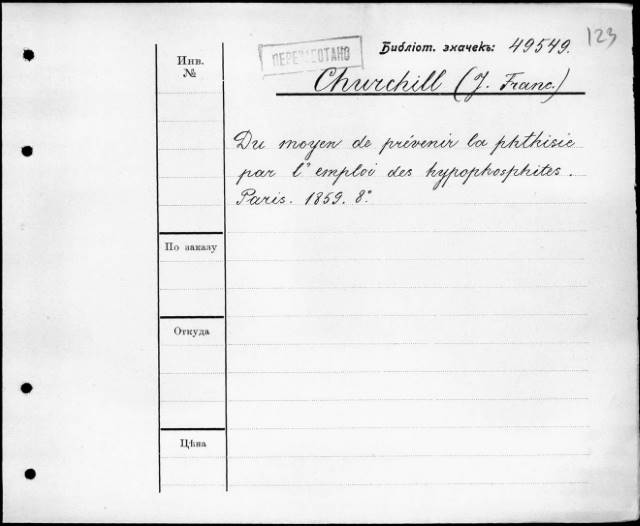 123
ПЕРЕРАБОТАНО
Библіот. значекъ: 49549.
Инв.
№
Churchill (J. Franc.)
Du moyen de prévenir la phthisie
par l'emploi des hypophosphites.
Paris. 1859. 8°
По заказу
Откуда
Цѣна